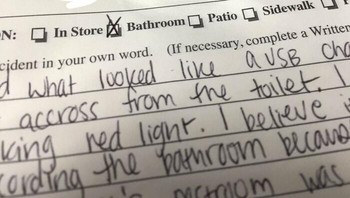 N: ☐ In Store ☒ Bathroom ☐ Patio ☐ Sidewalk ☐
cident in your own word. (If necessary, complete a Written
d what looked like a USB cha
accross from the toilet. I
king red light. I believe
cording the bathroom becaus
was